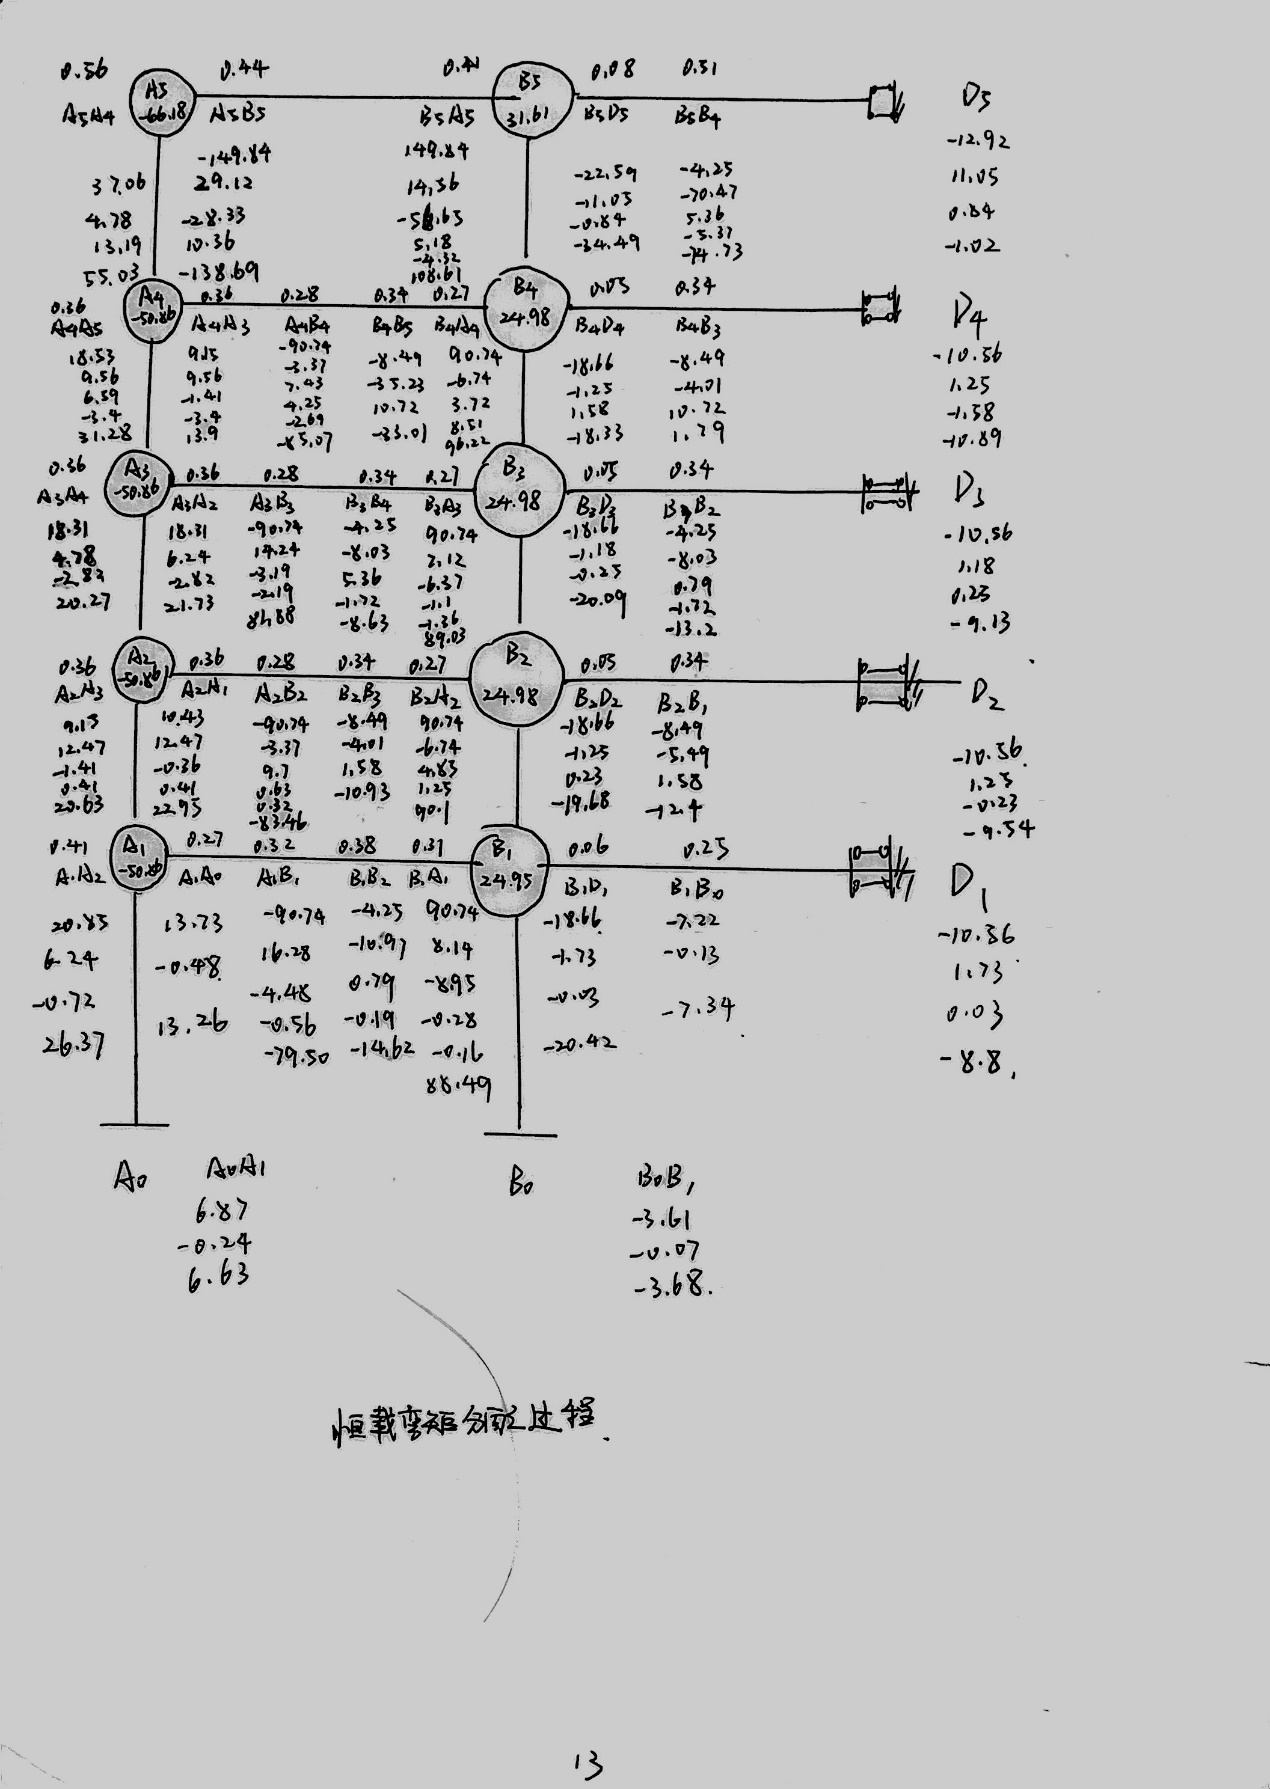 0.56 0.44 0.41 0.08 0.51
A5 B5 D5
-66.18 31.61
A5A4 A5B5 B5A5 B5D5 B5B4
-149.84 149.84 -12.92
37.06 29.12 14.56 -22.59 -4.25 11.05
4.78 -28.33 -11.05 -70.47 0.84
13.19 10.36 5.18 -0.84 5.36 -1.02
-4.32 -34.49 -5.37
55.03 -138.69 108.61 -74.73
A4 B4
0.36 0.36 0.28 0.34 0.27 0.05 0.34
-50.86 24.98 D4
A4A5 A4A3 A4B4 B4B5 B4A4 B4D4 B4B3
18.53 9.15 -90.74 -8.49 90.74 -18.66 -8.49 -10.56
9.56 9.56 -3.37 -35.23 -6.74 -1.25 -4.01 1.25
6.59 -1.41 7.43 10.72 3.72 1.58 10.72 -1.58
-3.4 -3.4 4.25 -33.01 8.51 -18.33 1.79 -10.89
31.28 13.9 -2.69 96.22
-85.07
A3 B3
0.36 0.36 0.28 0.34 0.27 0.05 0.34
-50.86 24.98 D3
A3A4 A3A2 A3B3 B3B4 B3A3 B3D3 B3B2
18.31 18.31 -90.74 -4.25 90.74 -18.66 -4.25 -10.56
4.78 6.24 14.24 -8.03 7.12 -1.18 -8.03 1.18
-2.82 -2.82 -3.19 5.36 -6.37 -0.25 0.79 0.25
20.27 21.73 -2.19 -1.72 -1.1 -20.09 -1.72 -9.13
81.88 -8.63 -1.36 -13.2
89.03
A2 B2
0.36 0.36 0.28 0.34 0.27 0.05 0.34
-50.86 24.98 D2
A2A3 A2A1 A2B2 B2B3 B2A2 B2D2 B2B1
9.15 10.43 -90.74 -8.49 90.74 -18.66 -8.49
12.47 12.47 -3.37 -4.01 -6.74 -1.25 -5.49 -10.56
-1.41 -0.36 9.7 1.58 4.85 0.23 1.58 1.25
0.41 0.41 0.63 -10.93 1.25 -19.68 -12.4 -0.23
20.63 22.95 0.32 90.1 -9.54
-83.46
0.41 0.27 0.32 0.38 0.31 0.06 0.25
A1 B1
-50.86 24.95 D1
A1A2 A1A0 A1B1 B1B2 B1A1 B1D1 B1B0
20.85 13.73 -90.74 -4.25 90.74 -18.66 -7.22 -10.56
6.24 -0.48 16.28 -10.97 8.14 -1.73 -0.13 1.73
-0.72 -4.48 0.79 -8.95 -0.03 -7.34 0.03
26.37 13.26 -0.56 -0.19 -0.28 -20.42 -8.8
-79.50 -14.62 -0.16
88.49
A0 A0A1 B0 B0B1
6.87 -3.61
-0.24 -0.07
6.63 -3.68.
恒载弯矩分配过程.
13